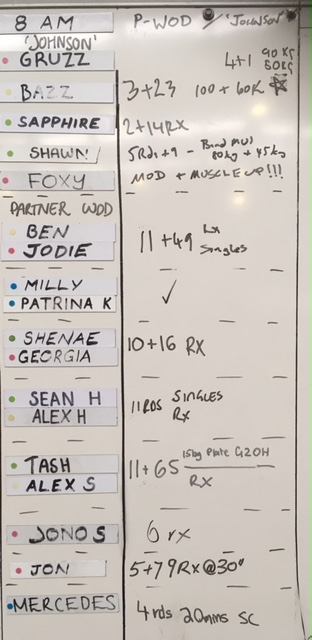 8 AM P-WOD / 'JOHNSON'
'JOHNSON'
GRUZZ 4+1 90 KG
50KG
BAZZ 3+23 100+60K
SAPPHIRE 2+14 RX
SHAWN 5Rds+9 - Band MUs
80kg + 45kg
FOXY MOD + MUSCLE UP!!!
PARTNER WOD
BEN 11+49 Rx
JODIE Singles
MILLY ✓
PATRINA K
SHENAE 10+16 RX
GEORGIA
SEAN H 11RDS SINGLES
ALEX H Rx
TASH 11+65 15kg Plate G2OH
ALEX S RX
JONO S 6 rx
JON 5+79 Rx@30"
MERCEDES 4rds 20mns SC